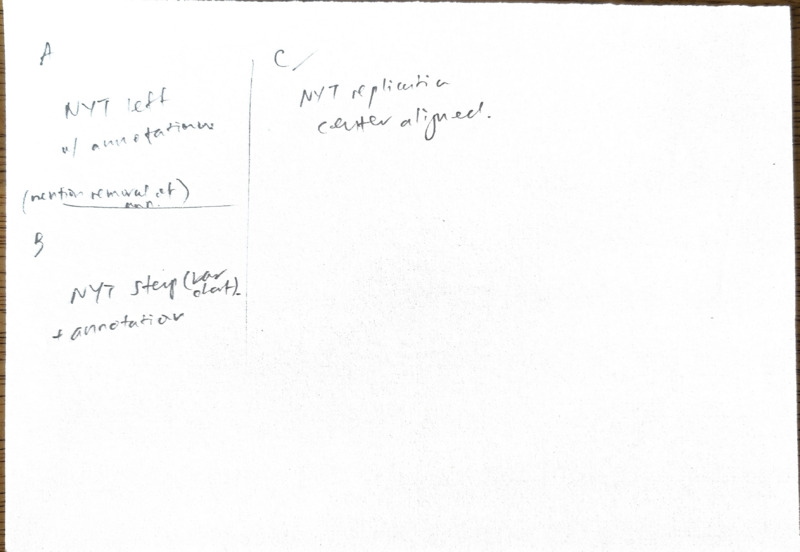 A
NYT left
w/ annotations
(mention removal of
ann.)
B
NYT strip (bar
chart)
+ annotation
C
NYT replication
center aligned.